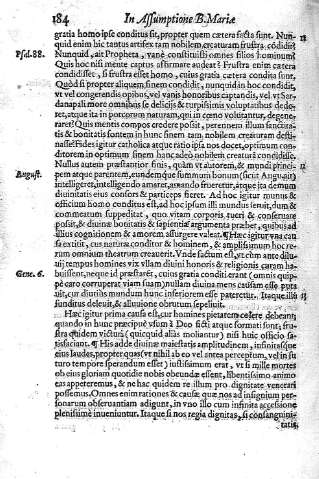 184 In Assumptione B. Mariæ
gratia homo ipse conditus sit, propter quem cætera facta sunt. Nun-
quid enim hic tantus artifex tam nobilem creaturam frustra códidit?
Psal. 88. Nunquid, ait Propheta, vanè constituisti omnes filios hominum?
Quis hoc nisi mente captus affirmare audeat? Frustra enim cætera
condidisset, si frustra esset homo, cuius gratia cætera condita sunt.
Quòd si propter aliquem finem condidit, nunquid an hoc condidit,
vt vel congerendis opibus, vel vanis honoribus captandis, vel vt Sar-
danapali more omnibus se deliciis & turpissimis voluptatibus dede-
ret, atque ita in porcorum naturam, qui in cœno volutantur, degene-
raret? Quis mentis compos credere possit, perennem illum sanctita-
tis & bonitatis fontem in hunc finem tam nobilem creaturam desti-
nasse? Fides igitur catholica atque ratio ipsa nos docet, optimum con-
ditorem in optimum finem hanc adeò nobilem creaturā condidisse.
Nullus autem præstantior finis, quàm vt autorem, & mundi princi-
August. pem atque parentem, eundemque summum bonum (sicut Aug. ait)
intelligeret, intelligendo amaret, amando frueretur, atque ita demum
diuinitatis eius consors & particeps fieret. Ad hoc igitur munus &
officium homo conditus est, ad hoc ipsum illi mundus seruit, dum &
commeatum suppeditat, quo vitam corporis tueri & conseruare
possit, & diuinæ bonitatis & sapientiæ argumenta præbet, quibus ad
illius cognitionem & amorem assurgere valeat. ¶ Hæc igitur vna cau
sa extitit, cur natura conditor & hominem, & amplissimum hoc re-
rum omnium theatrum creauerit. Vnde factum est, vt cùm ante dilu-
uij tempus homines vix vllam diuini honoris & religionis curam ha-
Gene. 6. buissent, neque id præstarét, cuius gratia conditi erant (omnis quip-
pe caro corruperat viam suam) nullam diuina mens causam esse puta
uit, cur diutius mundum hunc inferiorem esse pateretur. Itaque illū
funditus deleuit, & alluuione obrutum sepeliuit.
Hæc igitur prima causa est, cur homines pietatem colere debeant,
quando in hunc præcipuè vsum à Deo facti atque formati sunt; fru-
stra quidem victuri (quicquid alias moliantur) nisi huic officio sa-
tisfaciant. ¶ His adde diuinæ maiestatis amplitudinem, infinitasque
eius laudes, propter quas (vt nihil ab eo vel antea perceptum, vel in fu
turo tempore sperandum esset) iustissimum erat, vt si mille mortes
ob eius gloriam quotidie nobis obeundæ essent, libentissimo animo
eas appeteremus, & ne hac quidem re illum pro dignitate venerari
possemus. Omnes enim rationes & causæ quæ nos ad insignium per-
sonarum obseruantiam adigunt, in vno illo cum infinita accessione
plenissimè inueniuntur. Itaque si nos regia dignitas, si consanguini-
tatis